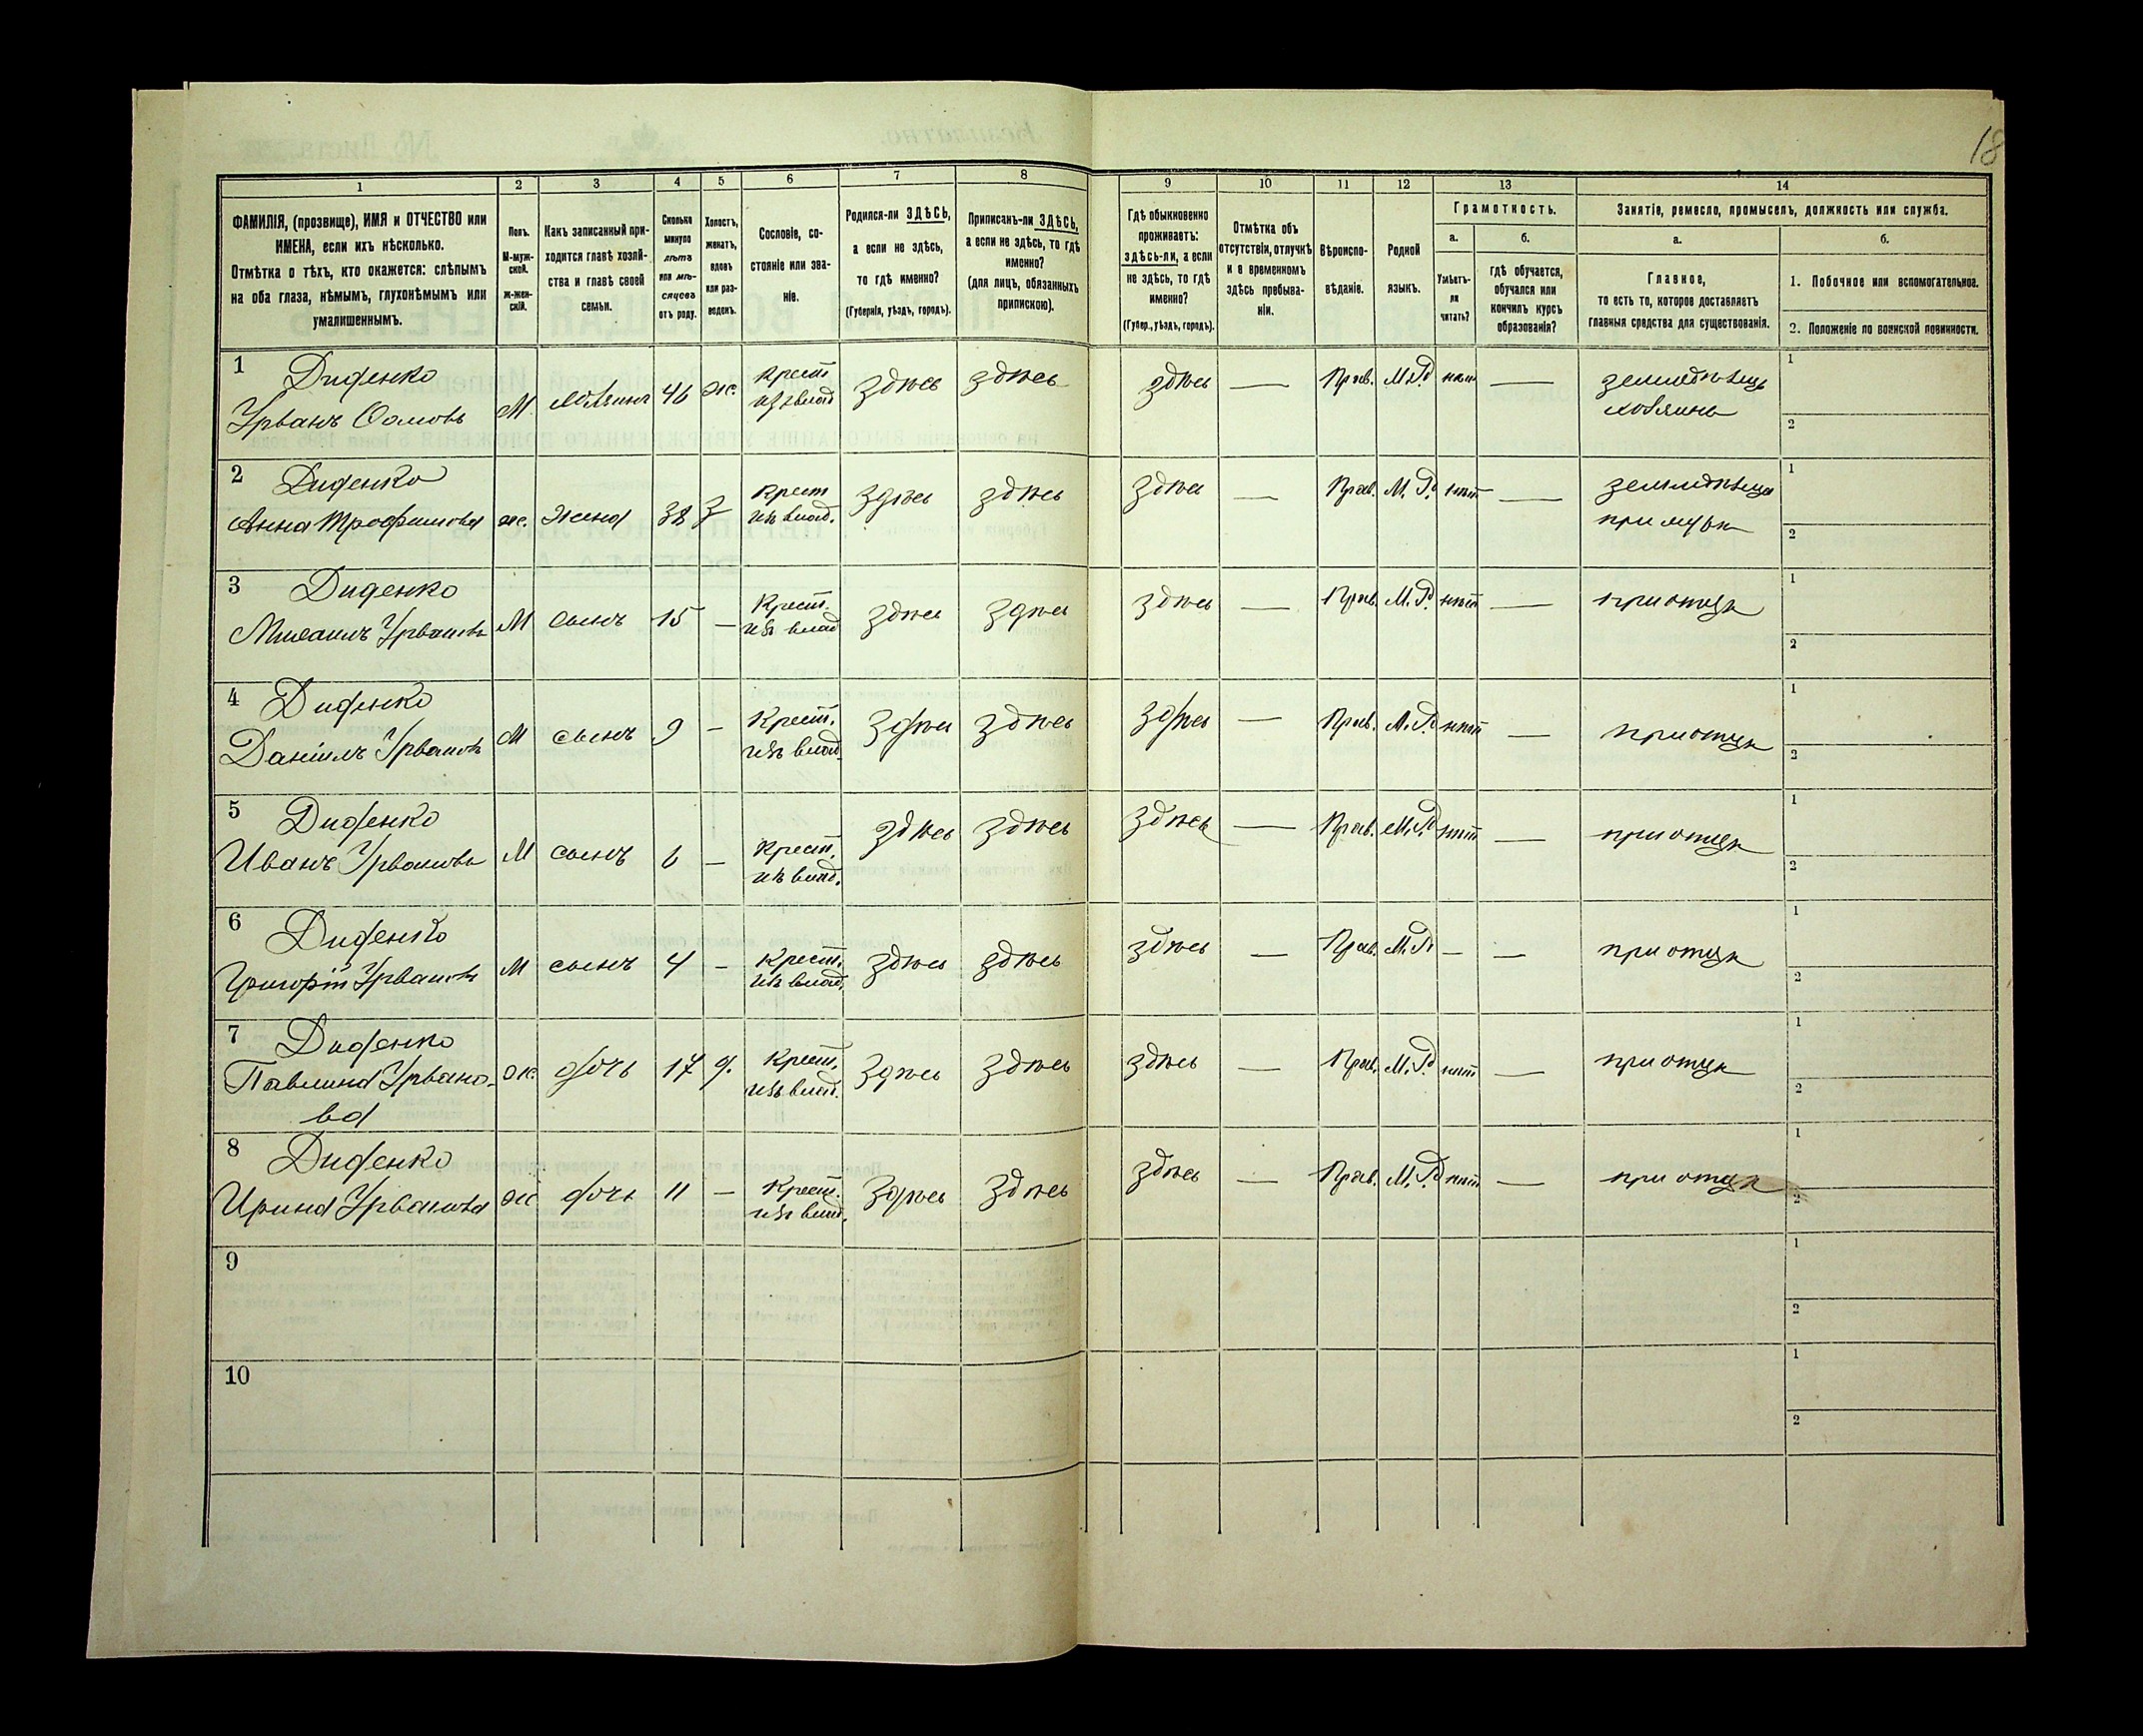 18
1 2 3 4 5 6 7 8 9 10 11 12 13 14
ФАМИЛІЯ, (прозвище), ИМЯ и ОТЧЕСТВО или
ИМЕНА, если ихъ нѣсколько.
Отмѣтка о тѣхъ, кто окажется: слѣпымъ
на оба глаза, нѣмымъ, глухонѣмымъ или
умалишеннымъ.
Полъ.
М-муж-
ской.
Ж-жен-
скій.
Какъ записанный при-
ходится главѣ хозяй-
ства и главѣ своей
семьи.
Сколько
минуло
лѣтъ
или мѣ-
сяцевъ
отъ роду.
Холостъ,
женатъ,
вдовъ
или раз-
веденъ.
Сословіе, со-
стояніе или зва-
ніе.
Родился-ли ЗДѢСЬ,
а если не здѣсь,
то гдѣ именно?
(Губернія, уѣздъ, городъ).
Приписанъ-ли ЗДѢСЬ,
а если не здѣсь, то гдѣ
именно?
(для лицъ, обязанныхъ
припискою).
Гдѣ обыкновенно
проживаетъ:
здѣсь-ли, а если
не здѣсь, то гдѣ
именно?
(Губер., уѣздъ, городъ).
Отмѣтка объ
отсутствіи, отлучкѣ
и о временномъ
здѣсь пребыва-
ніи.
Вѣроиспо-
вѣданіе.
Родной
языкъ.
Грамотность.
а.
Умѣетъ-
ли
читать?
б.
гдѣ обучается,
обучался или
кончилъ курсъ
образованія?
Занятіе, ремесло, промыселъ, должность или служба.
а.
Главное,
то есть то, которое доставляетъ
главныя средства для существованія.
б.
1. Побочное или вспомогательное.
2. Положеніе по воинской повинности.
1 Диденко
Урванъ Фомовъ М хозяинъ 46 ж. Крест. изъ влад здѣсь здѣсь здѣсь — Прав. М.Р. нѣт — земледѣлец хозяинъ 1 2
2 Диденко
Анна Трофимова ж. жена 38 з Крест изъ влад. здѣсь здѣсь здѣсь — Прав. М.Р. нѣт — земледѣлица при мужѣ 1 2
3 Диденко
Михаилъ Урвановъ М сынъ 15 — Крест. изъ влад здѣсь здѣсь здѣсь — Прав. М.Р. нѣт — при отцѣ 1 2
4 Диденко
Даніилъ Урвановъ М сынъ 9 — Крест. изъ влад. здѣсь здѣсь здѣсь — Прав. М.Р. нѣт — при отцѣ 1 2
5 Диденко
Иванъ Урвановъ М сынъ 6 — Крест. изъ влад. здѣсь здѣсь здѣсь — Прав. М.Р. нѣт — при отцѣ 1 2
6 Диденко
Григорій Урвановъ М сынъ 4 — Крест. изъ влад. здѣсь здѣсь здѣсь — Прав. М.Р. — — при отцѣ 1 2
7 Диденко
Павлина Урвано-
ва ж. дочь 17 д. Крест. изъ влад. здѣсь здѣсь здѣсь — Прав. М.Р. нѣт — при отцѣ 1 2
8 Диденко
Ирина Урванова ж дочь 11 — Крест. изъ влад. здѣсь здѣсь здѣсь — Прав. М.Р. нѣт — при отцѣ 1 2
9 1 2
10 1 2